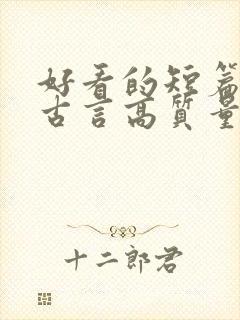 好看的短篇
古言高质量
十二郎君